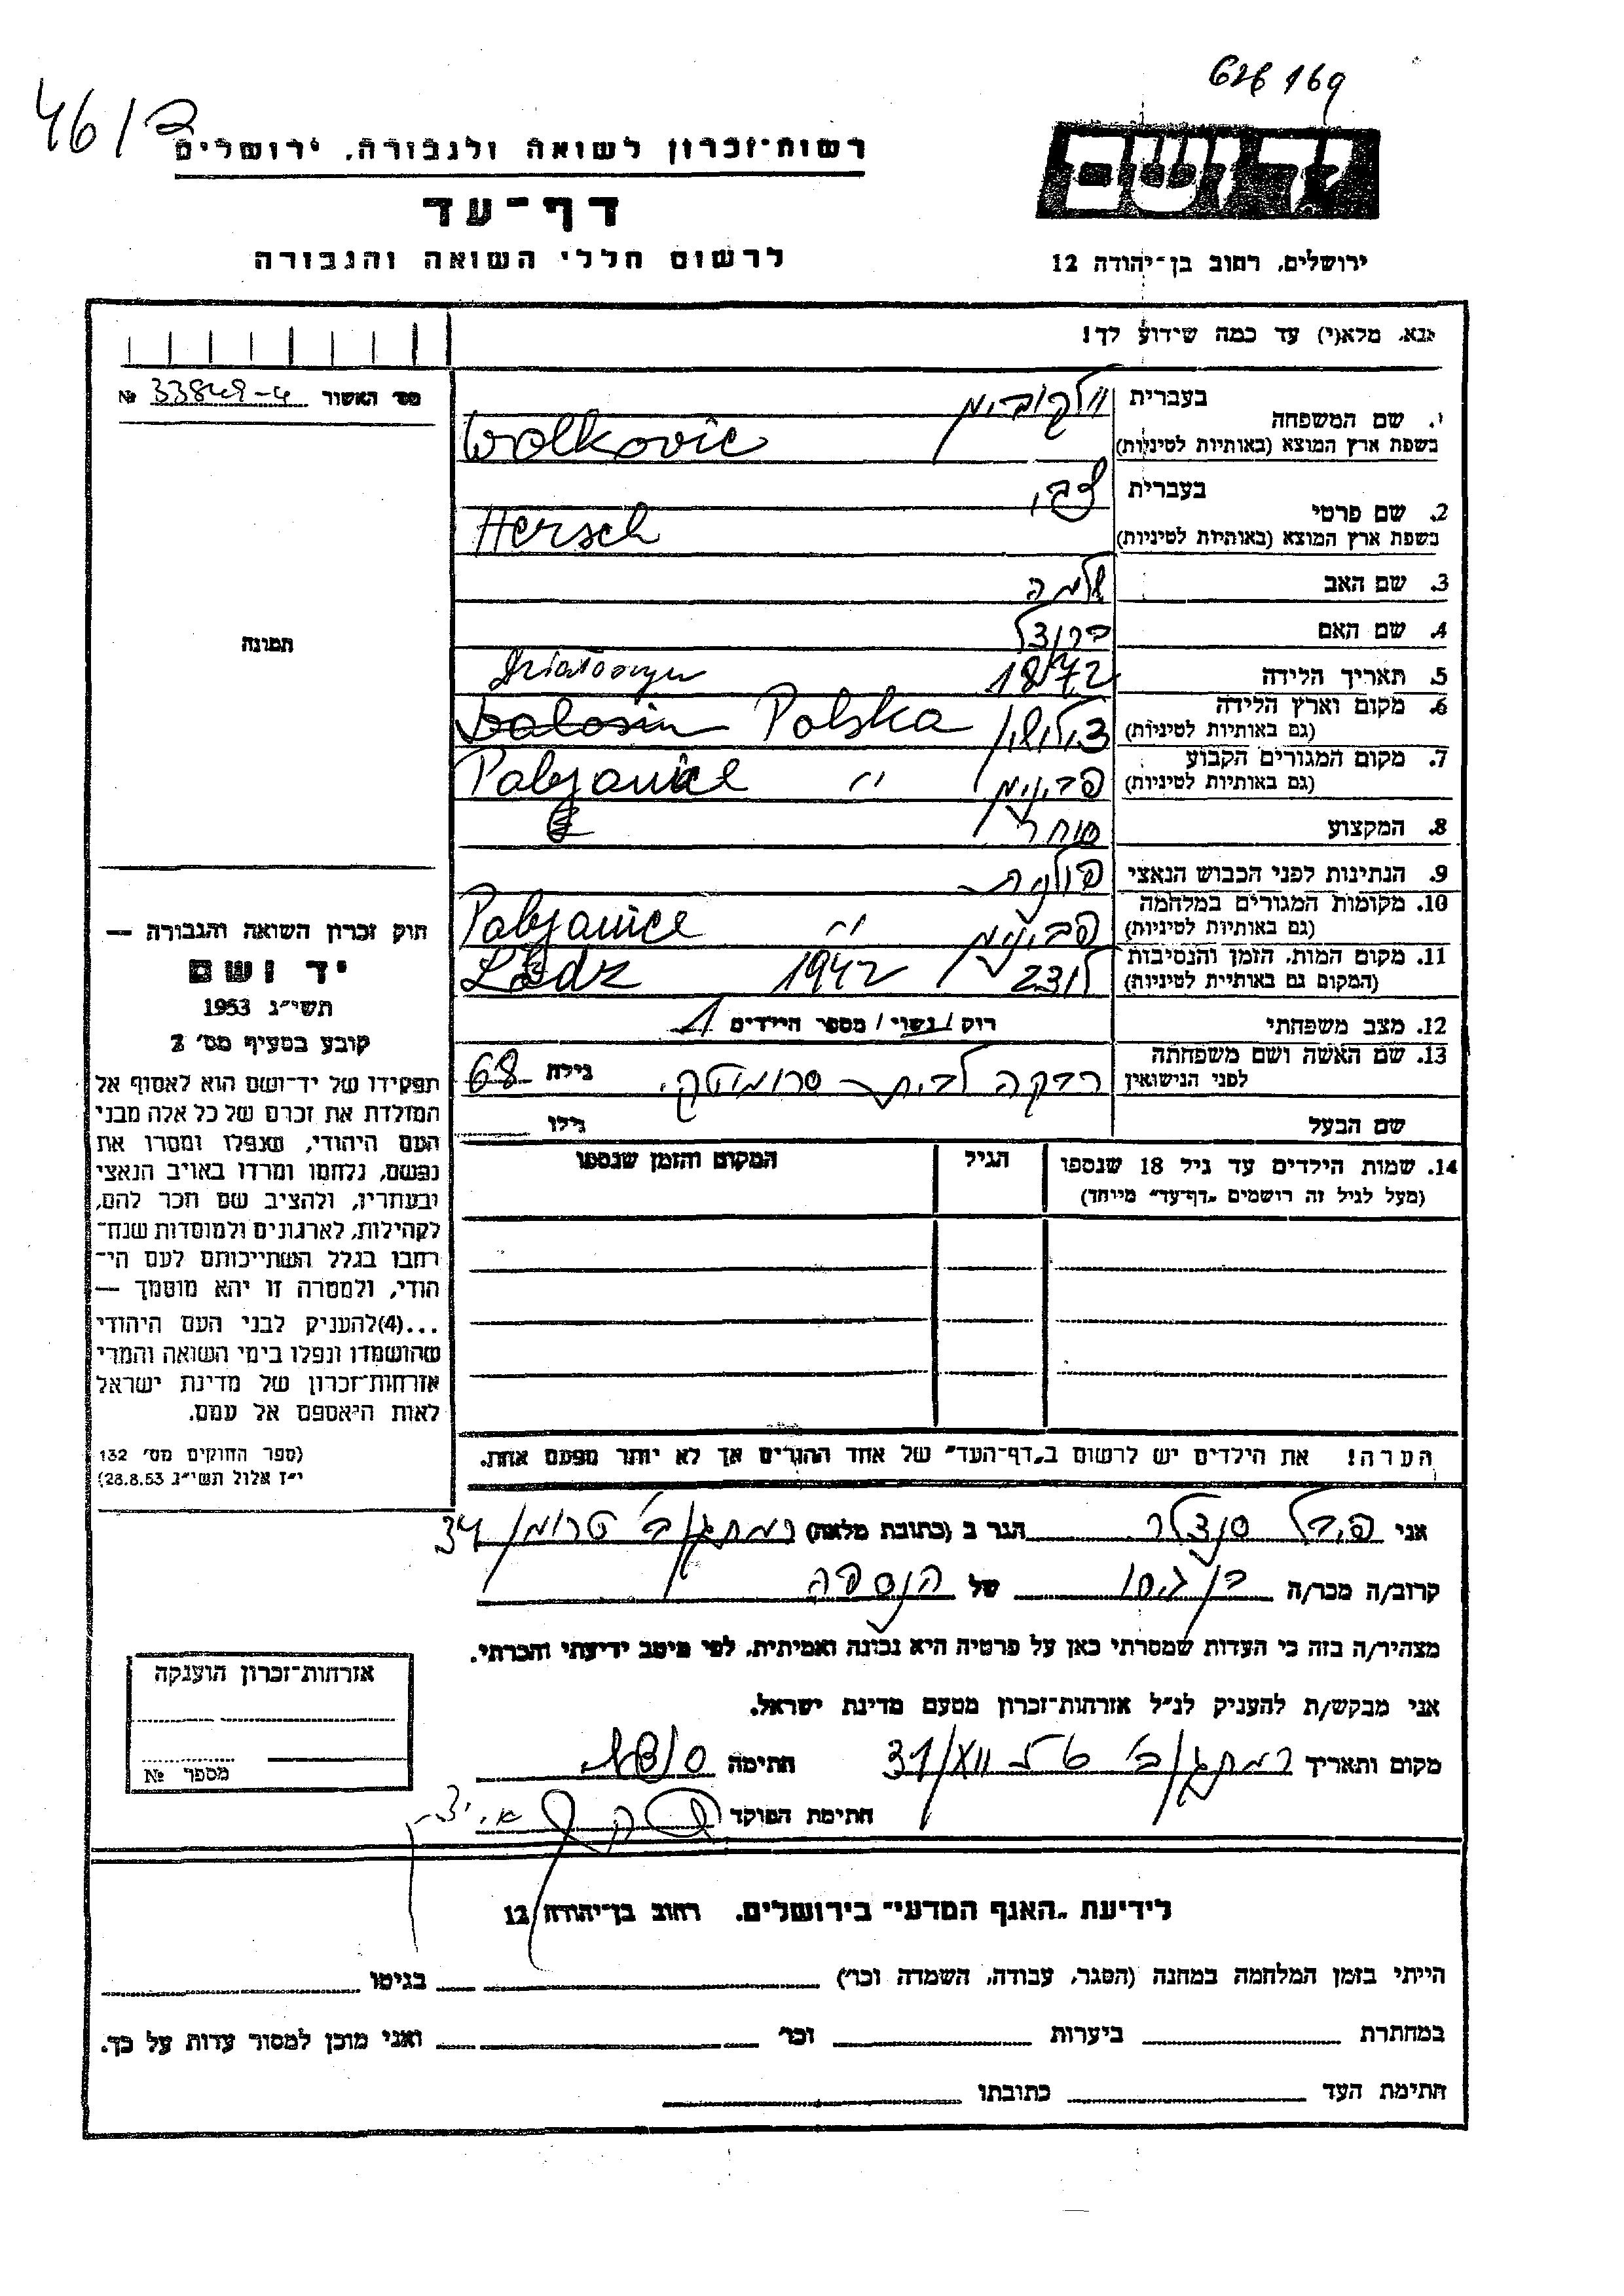 626169
46/כ
רשות־זכרון לשואה ולגבורה, ירושלים
יד ושם
דף־עד
לרשום חללי השואה והגבורה
ירושלים, רחוב בן־יהודה 12
נא, מלא(י) עד כמה שידוע לך!
מס׳ האשור 33849-4 №
1. שם המשפחה
בעברית וולקוביץ
בשפת ארץ המוצא (באותיות לטיניות) Wolkovic
2. שם פרטי
בעברית צבי
בשפת ארץ המוצא (באותיות לטיניות) Hersch
3. שם האב שלמה
4. שם האם
5. תאריך הלידה 1872
6. מקום וארץ הלידה
(גם באותיות לטיניות) Polska
7. מקום המגורים הקבוע
(גם באותיות לטיניות) פביניץ " Pabjanice
8. המקצוע סוחר
9. הנתינות לפני הכבוש הנאצי פולנית
10. מקומות המגורים במלחמה
(גם באותיות לטיניות) פביניץ " Pabjanice
11. מקום המות, הזמן והנסיבות
(המקום גם באותיות לטיניות) לודז 1942 Lodz
12. מצב משפחתי רוק/נשוי/מספר הילדים 1
13. שם האשה ושם משפחתה
לפני הנישואין רבקה לבית גילה 68
שם הבעל גילו
14. שמות הילדים עד גיל 18 שנספו הגיל המקום והזמן שנספו
(מעל לגיל זה רושמים „דף־עד" מיוחד)
תמונה
חוק זכרון השואה והגבורה —
יד ושם
תשי״ג 1953
קובע בסעיף מס׳ 2
תפקידו של יד־ושם הוא לאסוף אל
המולדת את זכרם של כל אלה מבני
העם היהודי, שנפלו ומסרו את
נפשם, נלחמו ומרדו באויב הנאצי
ובעוזריו, ולהציב שם וזכר להם,
לקהילות, לארגונים ולמוסדות שנח־
רבו בגלל השתייכותם לעם הי־
הודי, ולמטרה זו יהא מוסמך —
...(4)להעניק לבני העם היהודי
שהושמדו ונפלו בימי השואה והמרי
אזרחות־זכרון של מדינת ישראל
לאות היאספם אל עמם.
(ספר החוקים מס׳ 132
י״ז אלול תשי״ג 28.8.53)
הערה! את הילדים יש לרשום ב„דף־העד" של אחד ההורים אך לא יותר מפעם אחת.
אני סנדלר הגר ב (כתובת מלאה) רמת גן 34
קרוב/ה מכר/ה של הנספה
מצהיר/ה בזה כי העדות שמסרתי כאן על פרטיה היא נכונה ואמיתית, לפי מיטב ידיעתי והכרתי.
אני מבקש/ת להעניק לנ״ל אזרחות־זכרון מטעם מדינת ישראל.
מקום ותאריך רמת גן חתימה
חתימת הפוקד
אזרחות־זכרון הוענקה
מספר №
לידיעת „האגף המדעי" בירושלים, רחוב בן־יהודה 12
הייתי בזמן המלחמה במחנה (הסגר, עבודה, השמדה וכו׳) בגיטו
במחתרת ביערות וכו׳ ואני מוכן למסור עדות על כך.
חתימת העד כתובתו